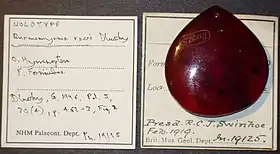 HOLOTYPE
Burmomyrma rossi Dlussky
O. Hymenoptera
F. Formicidae
Dlussky, G. 1996. Pal. J.,
30(4), p. 451-3, Fig. 2
NHM Palaeont. Dept. In. 19125
Form
Loca
Presd. R.C.J. Swinhoe,
Feb. 1919.
Brit. Mus. Geol. Dept. In. 19125.